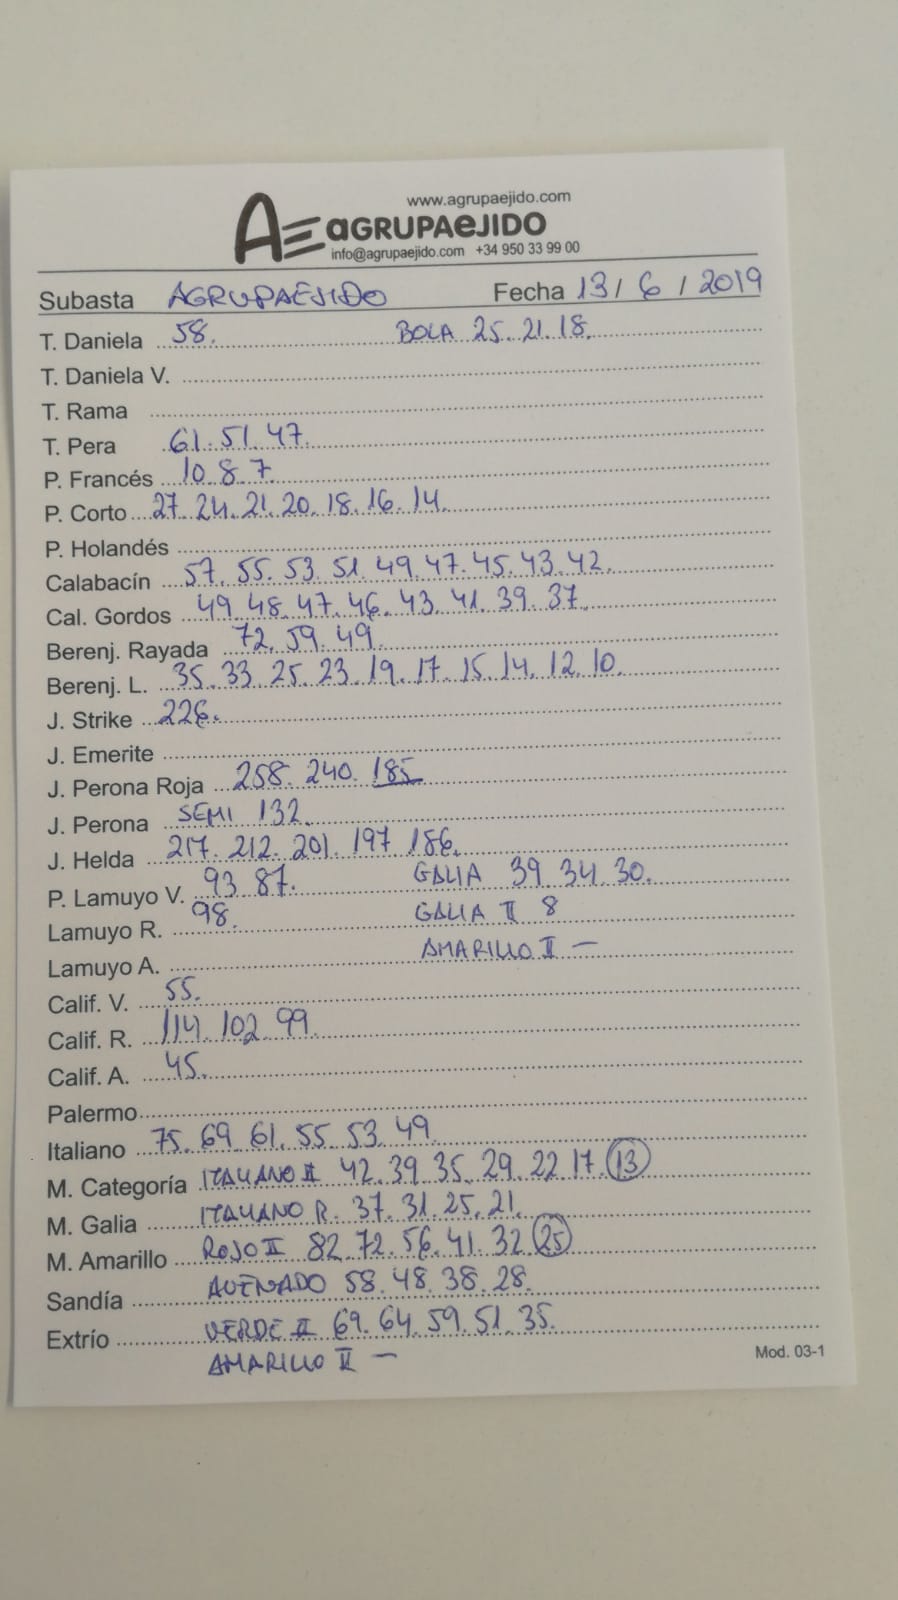 www.agrupaejido.com
AGRUPAEJIDO
info@agrupaejido.com +34 950 33 99 00
Subasta AGRUPAEJIDO Fecha 13/6/2019
T. Daniela 58. BOLA 25. 21. 18.
T. Daniela V.
T. Rama
T. Pera 61. 51. 47.
P. Francés 10. 8. 7.
P. Corto 27. 24. 21. 20. 18. 16. 14.
P. Holandés
Calabacín 57. 55. 53. 51. 49. 47. 45. 43. 42.
Cal. Gordos 49. 48. 47. 46. 43. 41. 39. 37.
Berenj. Rayada 72. 59. 49.
Berenj. L. 35. 33. 25. 23. 19. 17. 15. 14. 12. 10.
J. Strike 226.
J. Emerite
J. Perona Roja 258. 240. 185
J. Perona SEMI 132.
J. Helda 217. 212. 201. 197 186.
P. Lamuyo V. 93 87. GALIA 39. 34. 30.
Lamuyo R. 98. GALIA II 8
Lamuyo A. AMARILLO II —
Calif. V. 55.
Calif. R. 114. 102. 99.
Calif. A. 45.
Palermo
Italiano 75. 69. 61. 55. 53. 49.
M. Categoría ITALIANO II 42. 39. 35. 29. 22. 17. 13
M. Galia ITALIANO R. 37. 31. 25. 21.
M. Amarillo ROJO II 82. 72. 56. 41. 32. 25
Sandía 58. 48. 38. 28.
Extrío VERDE II 69. 64. 59. 51. 35.
AMARILLO II —
Mod. 03-1